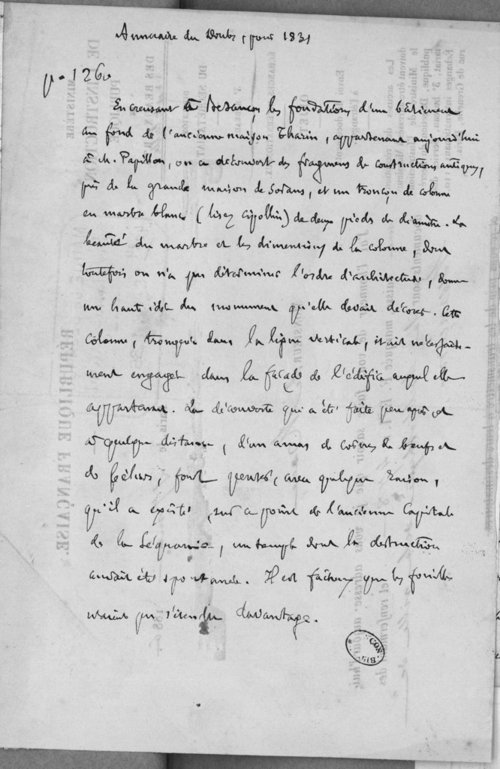 Annuaire du Doubs, pour 1831
p. 126
En creusant à Besançon les fondations d'un bâtiment
au fond de l'ancienne maison Tharin, appartenant aujourd'hui
à M. Papillon, on a découvert des fragmens de constructions antiques,
près de la grande maison de Sorans, et un tronçon de colonne
en marbre blanc (lisez Cipollin) de deux pieds de diamètre. La
beauté du marbre et les dimensions de la colonne, dont
toutefois on n'a pu déterminer l'ordre d'architecture, donne
une haute idée du monument qu'elle devait décorer. Cette
colonne, tronquée dans la ligne verticale, était nécessaire-
ment engagée dans la façade de l'édifice auquel elle
appartenait. La découverte qui a été faite peu après et
à quelque distance, d'un amas de cornes de boeufs et
de béliers, font penser, avec quelque raison,
qu'il a existé sur ce point de l'ancienne Capitale
de la Séquanie, un temple dont la destruction
aurait été spontanée. Il est fâcheux que les fouilles
n'aient pu s'étendre davantage.
BIB. CON
RÉPUBLIQUE FRANÇAISE